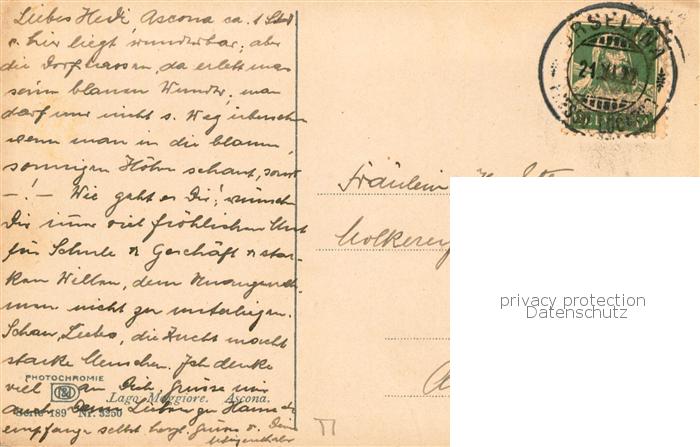 Liebes Hedi Ascona ca. 1 Std
v. hier liegt wunderbar, aber
die Dorfgassen, da erlebt man
seine blauen Wunder, man
darf nur nicht s. Weg übersehen
wenn man in die blauen,
sonnigen Höhen schaut, sonst
– ! – Wie geht es Dir, wünsche
Dir immer viel fröhlichen Mut
für Schule & Geschäft & star-
ken Willen, dem Unangeneh-
men nicht zu unterliegen.
Schau, Liebes, die Zucht macht
starke Menschen. Ich denke
viel an Dich, grüsse mir
auch Deine Lieben zu Hause &
empfange selbst herzl. Grüsse v. Deiner
PHOTOCHROMIE
Lago Maggiore. Ascona.
Serie 189 Nr. 3250
ORSELINA
21.XI
Fräulein
Molkerei
privacy protection
Datenschutz